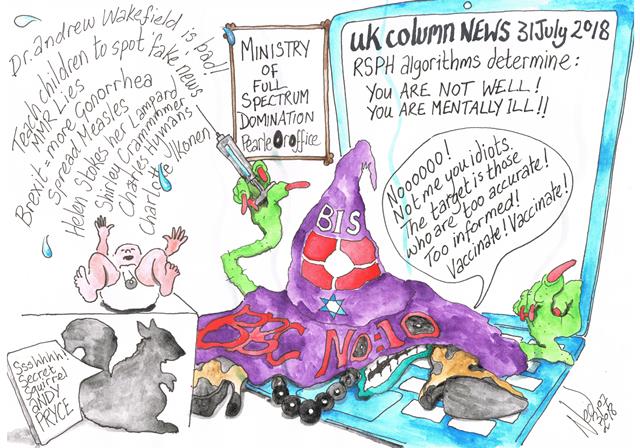 Dr. andrew Wakefield is bad!
Teach children to spot 'fake news'
MMR Lies
Brexit = more Gonorrhea
Spread Measles
Helen Stokes her Lampard
Shirley Crammhmer
Charles Hymans
Charlotte Ilkonen
MINISTRY
OF
FULL
SPECTRUM
DOMINATION
uk column NEWS 31 July 2018
RSPH algorithms determine:
YOU ARE NOT WELL!
YOU ARE MENTALLY ILL!!
Noooooo!
Not me you idiots.
The target is those
who are too accurate!
Too informed!
Vaccinate! Vaccinate!
BIS
BBC NO:10
Ssshhhh!
Secret
Squirrel
ANDY
PRYCE
2018